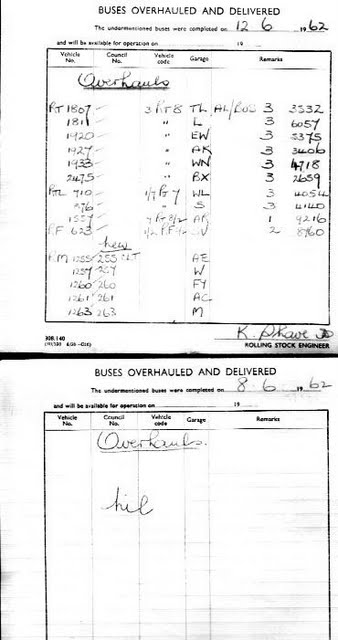 BUSES OVERHAULED AND DELIVERED
The undermentioned buses were completed on 12 6 1962
and will be available for operation on 19
Vehicle No. Council No. Vehicle code Garage Remarks
Overhauls
RT 1807 3 RT8 TL AL/ROS 3 3532
1811 " L 3 6057
1920 " EW 3 5375
1927 " AK 3 3406
1933 " WN 3 4718
2475 " BX 3 2659
RTL 710 1/7 RT 7 WL 3 4054
S 3 4140
1557 AR 1 9216
RF 623 2 8960
new
RM 1255 255 CLT AE
1257 257 W
1260 260 FY
1261 261 AC
1263 263 M
ROLLING STOCK ENGINEER
BUSES OVERHAULED AND DELIVERED
The undermentioned buses were completed on 8 6 1962
and will be available for operation on 19
Vehicle No. Council No. Vehicle code Garage Remarks
Overhauls.
nil